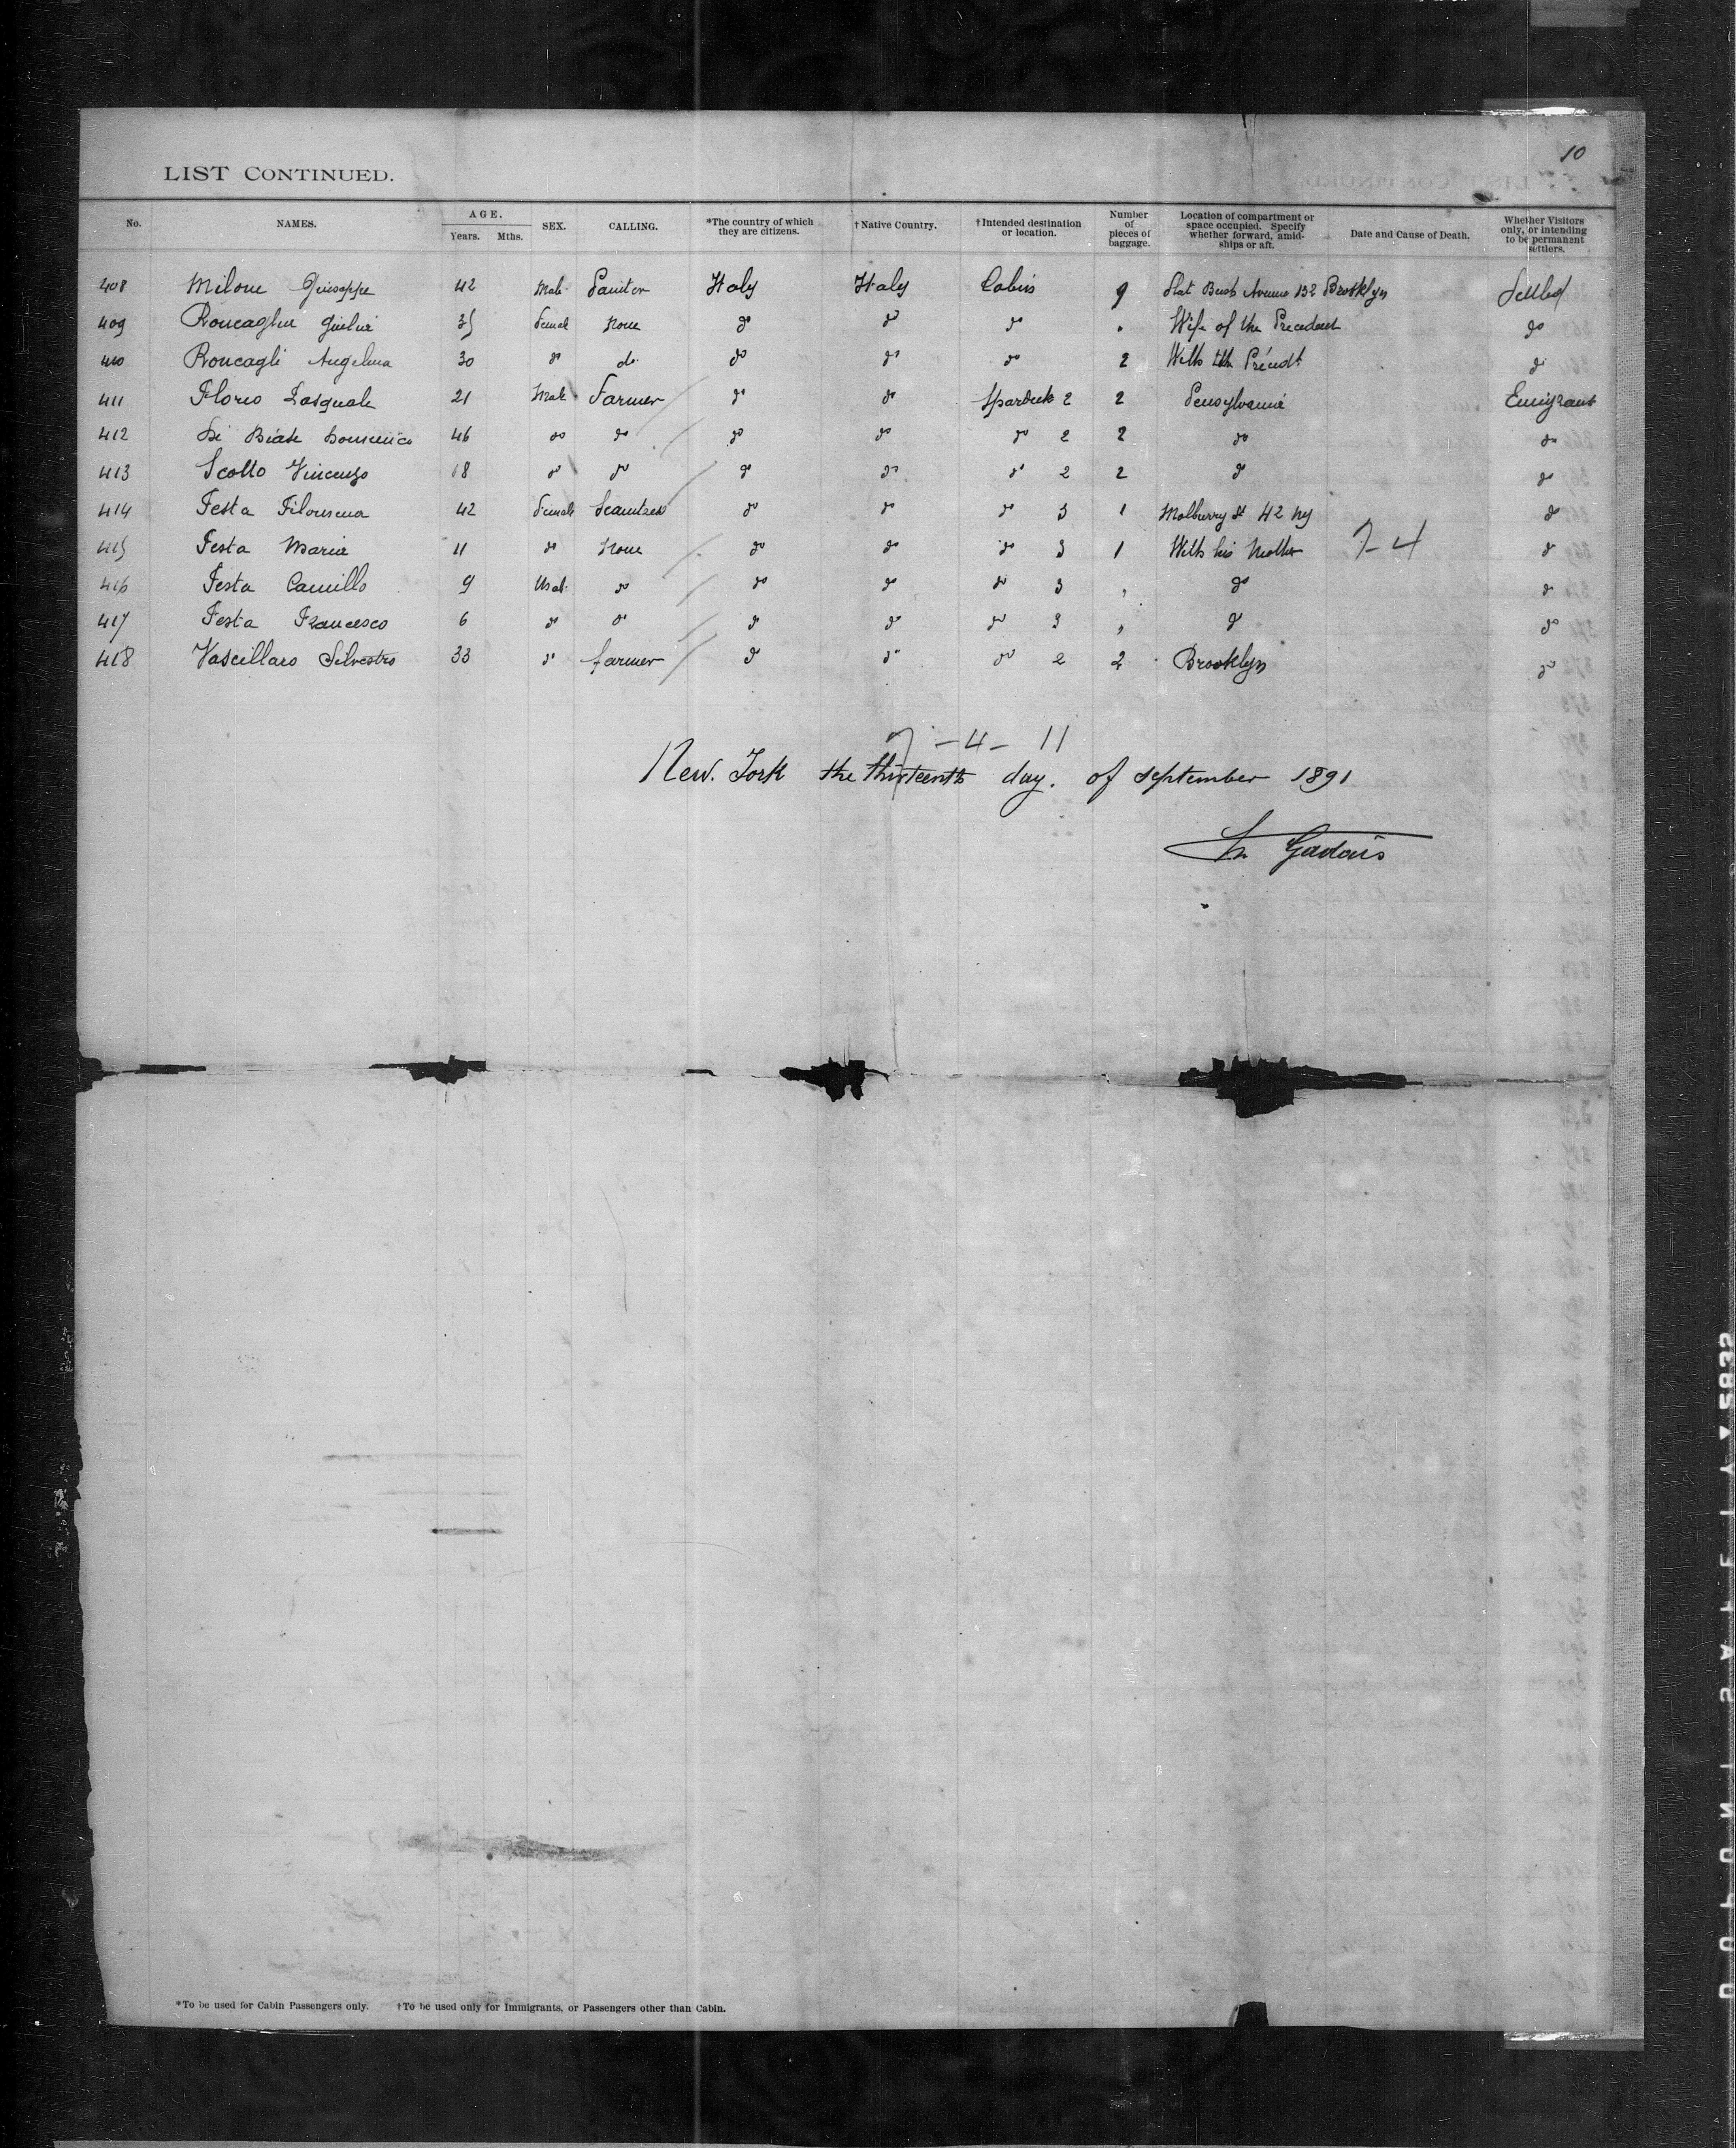 10
LIST CONTINUED.
No. NAMES. AGE. Years. Mths. SEX. CALLING. *The country of which they are citizens. †Native Country. †Intended destination or location. Number of pieces of baggage. Location of compartment or space occupied. Specify whether forward, amidships or aft. Date and Cause of Death. Whether Visitors only, or intending to be permanent settlers.
408 Milone Giuseppe 42 Male Italy Italy Cabin 9 Flat Bush Avenue 132 Brooklyn Settled
409 35 Female None do do do Wife of the Precedent do
410 Roncagli Angelina 30 do do do do do 2 With the do
411 Florio Pasquale 21 Male Farmer do do 2 2 Pensylvania Emigrant
412 Di Biase Domenico 46 do do do do do 2 2 do do
413 Scotto Vincenzo 18 do do do do do 2 2 do do
414 Festa Filomena 42 Female do do do 3 1 Molberry St 42 Ny do
415 Festa Maria 11 do None do do do 3 1 With his Mother 7-4 do
416 Festa Camillo 9 Male do do do do 3 " do do
417 Festa Francesco 6 do do do do do 3 " do do
418 Vascellaro Silvestro 33 do farmer do do do 2 2 Brooklyn do
7 - 4 - 11
New. York the thirteenth day. of september 1891
*To be used for Cabin Passengers only. †To be used only for Immigrants, or Passengers other than Cabin.